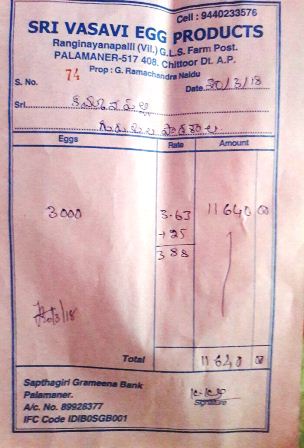 Cell : 9440233576
SRI VASAVI EGG PRODUCTS
Ranginayanapalli (Vil.) G.L.S. Farm Post.
PALAMANER-517 408. Chittoor Dt. A.P.
Prop : G. Ramachandra Naidu
S. No. 74 Date 30/3/18
Sri
Eggs Rate Amount
3000 3.63 11640 00
+ 25
3 88
Total 11640 00
Sapthagiri Grameena Bank
Palamaner.
A/c. No. 89926377
IFC Code IDIB0SGB001
Signature